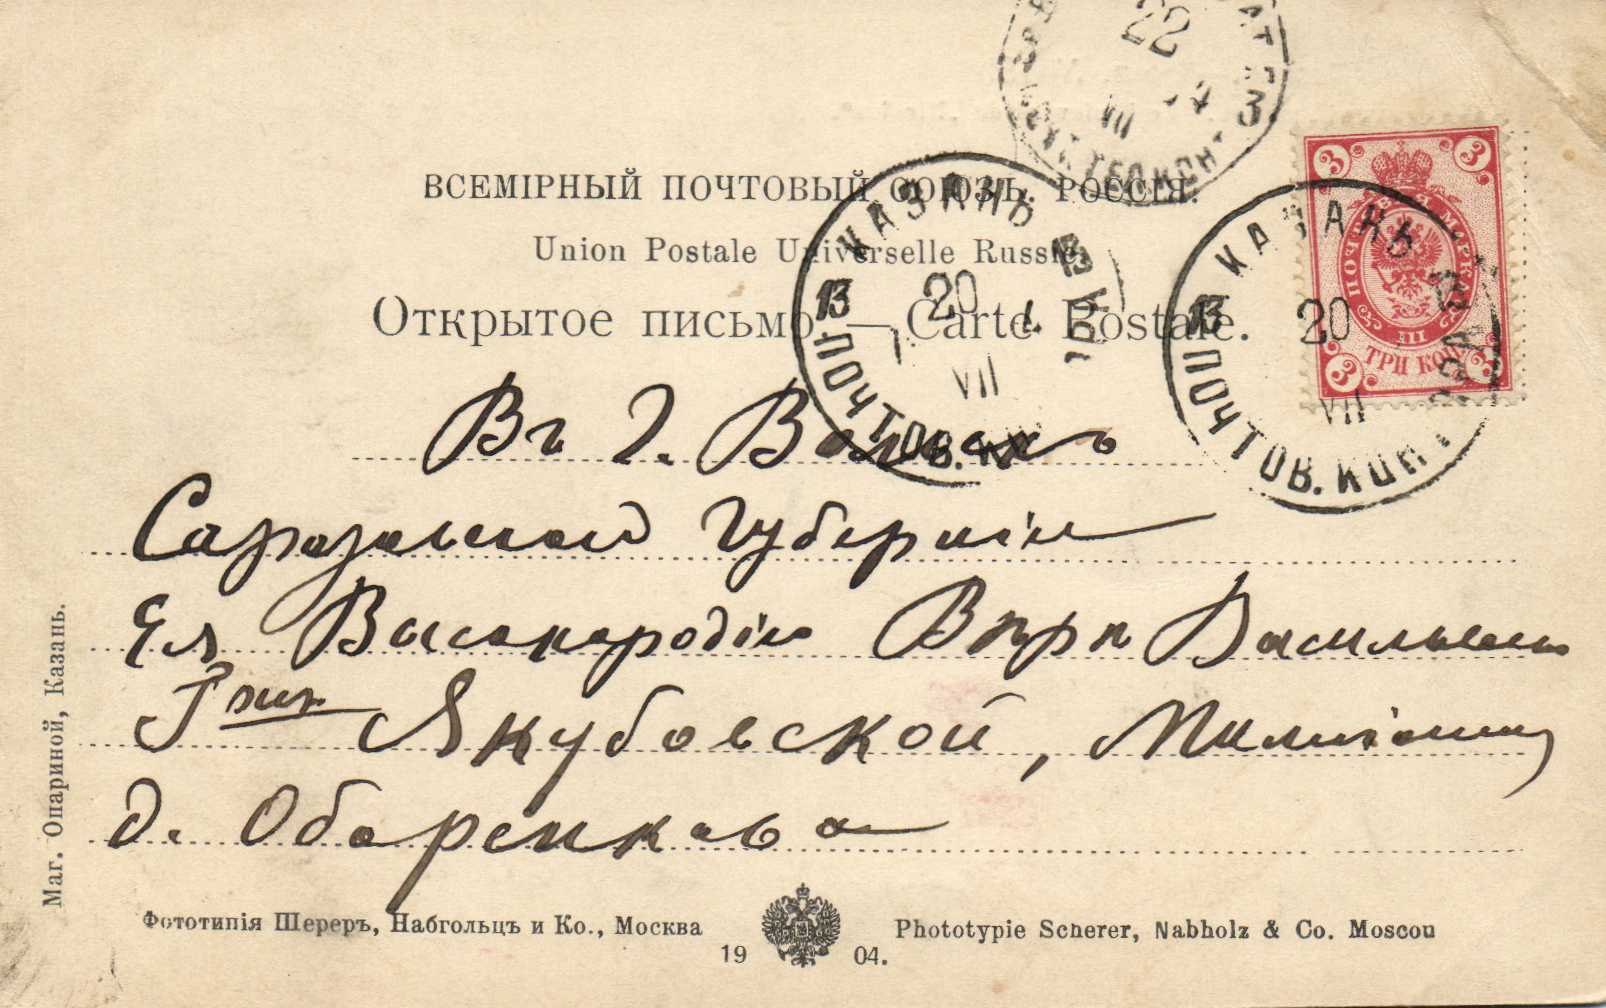 ВСЕМІРНЫЙ ПОЧТОВЫЙ СОЮЗЪ. РОССІЯ.
Union Postale Universelle Russie
Открытое письмо. — Carte Postale.
22
VII
3
КАЗАНЬ
13
20
VII
ПОЧТОВ.
КАЗАНЬ
13
20
VII
ПОЧТОВ. КОНТ
3 3
ТРИ КОП.
3 3
Въ г. Вольскъ
Саратовской губерніи
Ея Высокородію Вѣрѣ Васильевнѣ
Г-жѣ Якубовской,
д. Оборенкова
Маг. Опариной, Казань.
Фототипія Шереръ, Набгольцъ и Ко., Москва
1904.
Phototypie Scherer, Nabholz & Co. Moscou